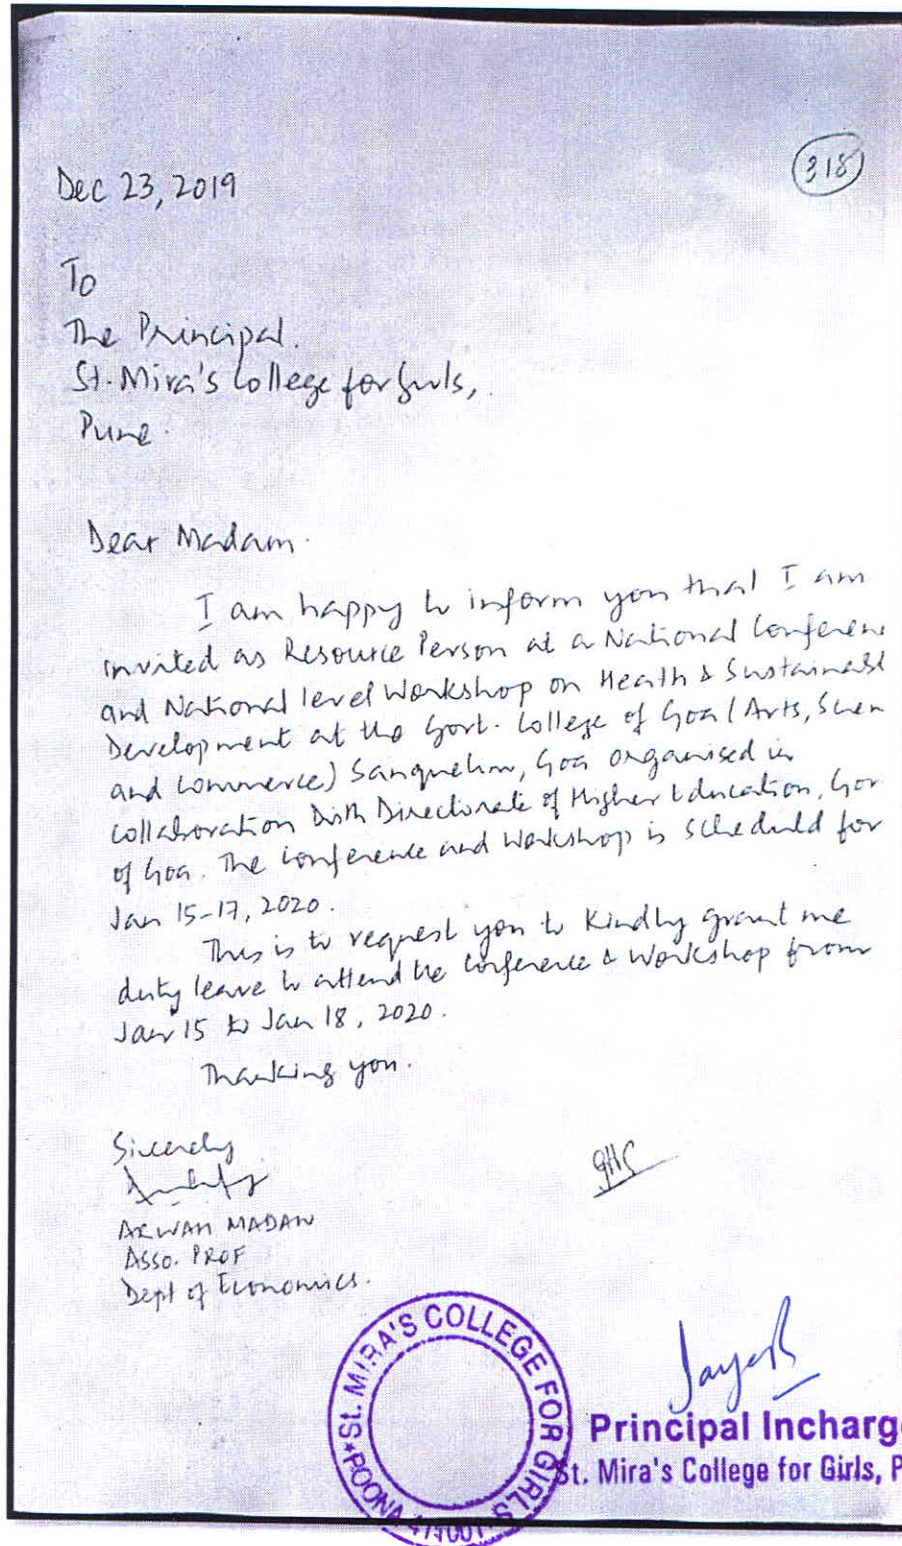 318
Dec 23, 2019
To
The Principal.
St. Mira's College for Girls,
Pune.
Dear Madam.
I am happy to inform you that I am
invited as Resource Person at a National Conferen
and National level Workshop on Health & Sustainabl
Development at the Govt. College of Goa (Arts, Scien
and Commerce) Sanquelim, Goa organised in
collaboration with Directorate of Higher Education, Gov
of Goa. The Conference and Workshop is scheduled for
Jan 15-17, 2020.
This is to request you to Kindly grant me
duty leave to attend the Conference & Workshop from
Jan 15 to Jan 18, 2020.
Thanking you.
Sincerely
ARWAH MADAN
Asso. PROF
Dept of Economics.
St. MIRA'S COLLEGE FOR GIRLS
POONA 411001
Principal Incharg
St. Mira's College for Girls, P